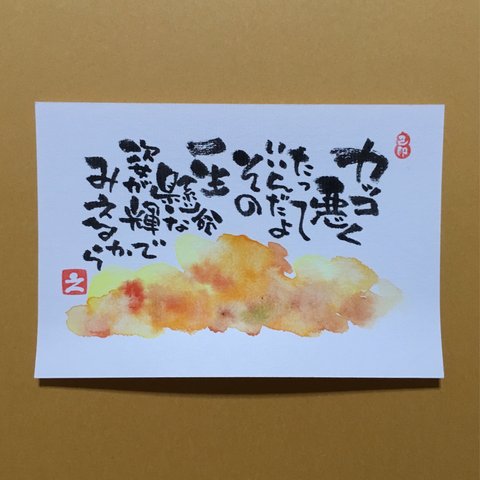 カッコ
悪く
たって
いいんだよ
その
一生
懸命な
姿が輝いて
みえるから
之